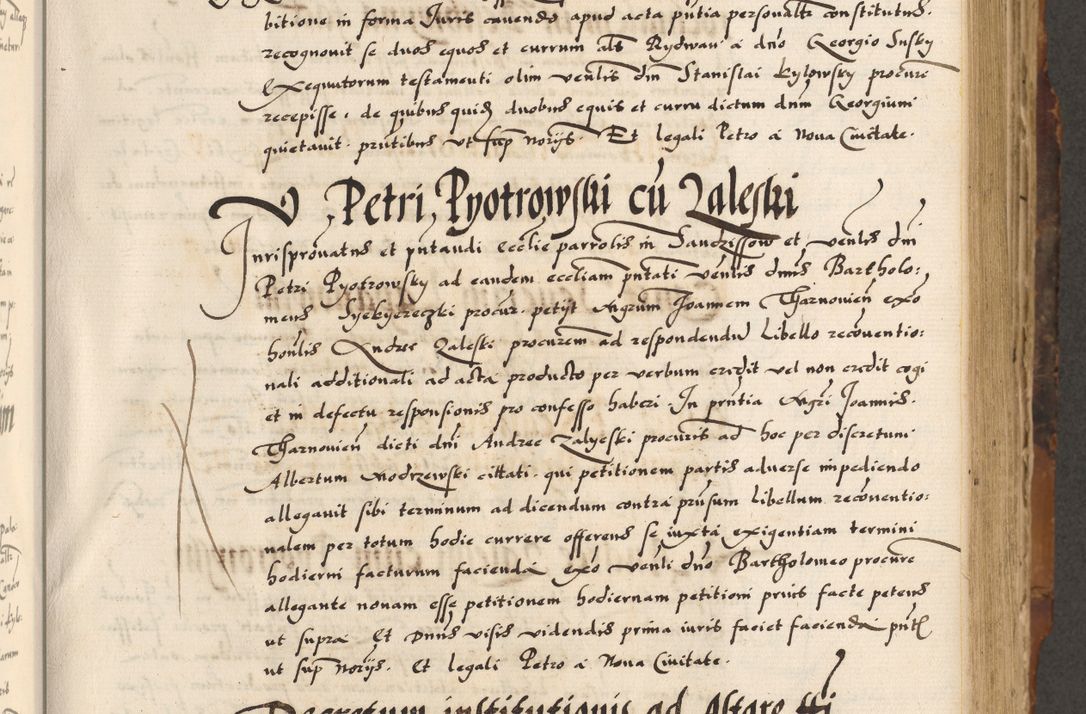 bitione in forma Juris cavendo apud acta pñtia personaltr constitutus.
recognovit se duos equos et currum als Rydwan a dno Georgio Susky
Exequutorum testamenti olim venlis dñi Stanislai Kylowsky procure
recepisse, de quibus quidē duobus equis et curru dictum dnm Georgium
quietavit. pñtibus ut sup norijs. Et legali Petro a Nova Civitate.
Petri Pyotrowski cū Zaleski
Jurispronatus et pñtandi eccelie parrolis in Sandzissow et venlis dñi
Petri Pyotrowsky ad eandem eccliam pñtati venlis dnus Bartholo:
meus procur. petijt Mgrum Joannem Tharnovien̄ exo
honlis Andree Zaleski procurem ad respondendū Libello recōventio:
nali additionali ad acta producto per verbum credit vel non credit cogi
et in defectu responsionis pro confesso haberi. In pñtia Mgri Joannis.
Tharnovien̄ dicti dñi Andree Zalyeski procuris ad hoc per discretum
Albertum Modrzewski cittati. qui petitionem partis adverse impediendo
allegavit sibi terminum ad dicendum contra prīsum Libellum recōventio:
nalem per totum hodie currere offerens se iuxta exigentiam termini
hodierni facturum facienda exo venli dno Bartholomeo procure
allegante novam esse petitionem hodiernam petitioni prius facte petens
ut supra Et Dnus visis videndis prima iuris faciet facienda pñtl
ut sup norijs. Et legali Petro a Nova Civitate.
Decretum institutionis ad Altare tti